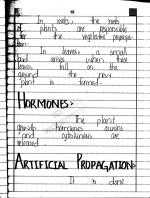 In roots, the roots
of plants are responsible
for the vegetative propaga-
tion.
In leaves, a small
bud arises when these
leaves fall on the
ground the new
plant is formed.
HORMONES>
The plant
growth hormones auxins
and cytokinins are
released.
ARTIFICIAL PROPAGATION>
It is done